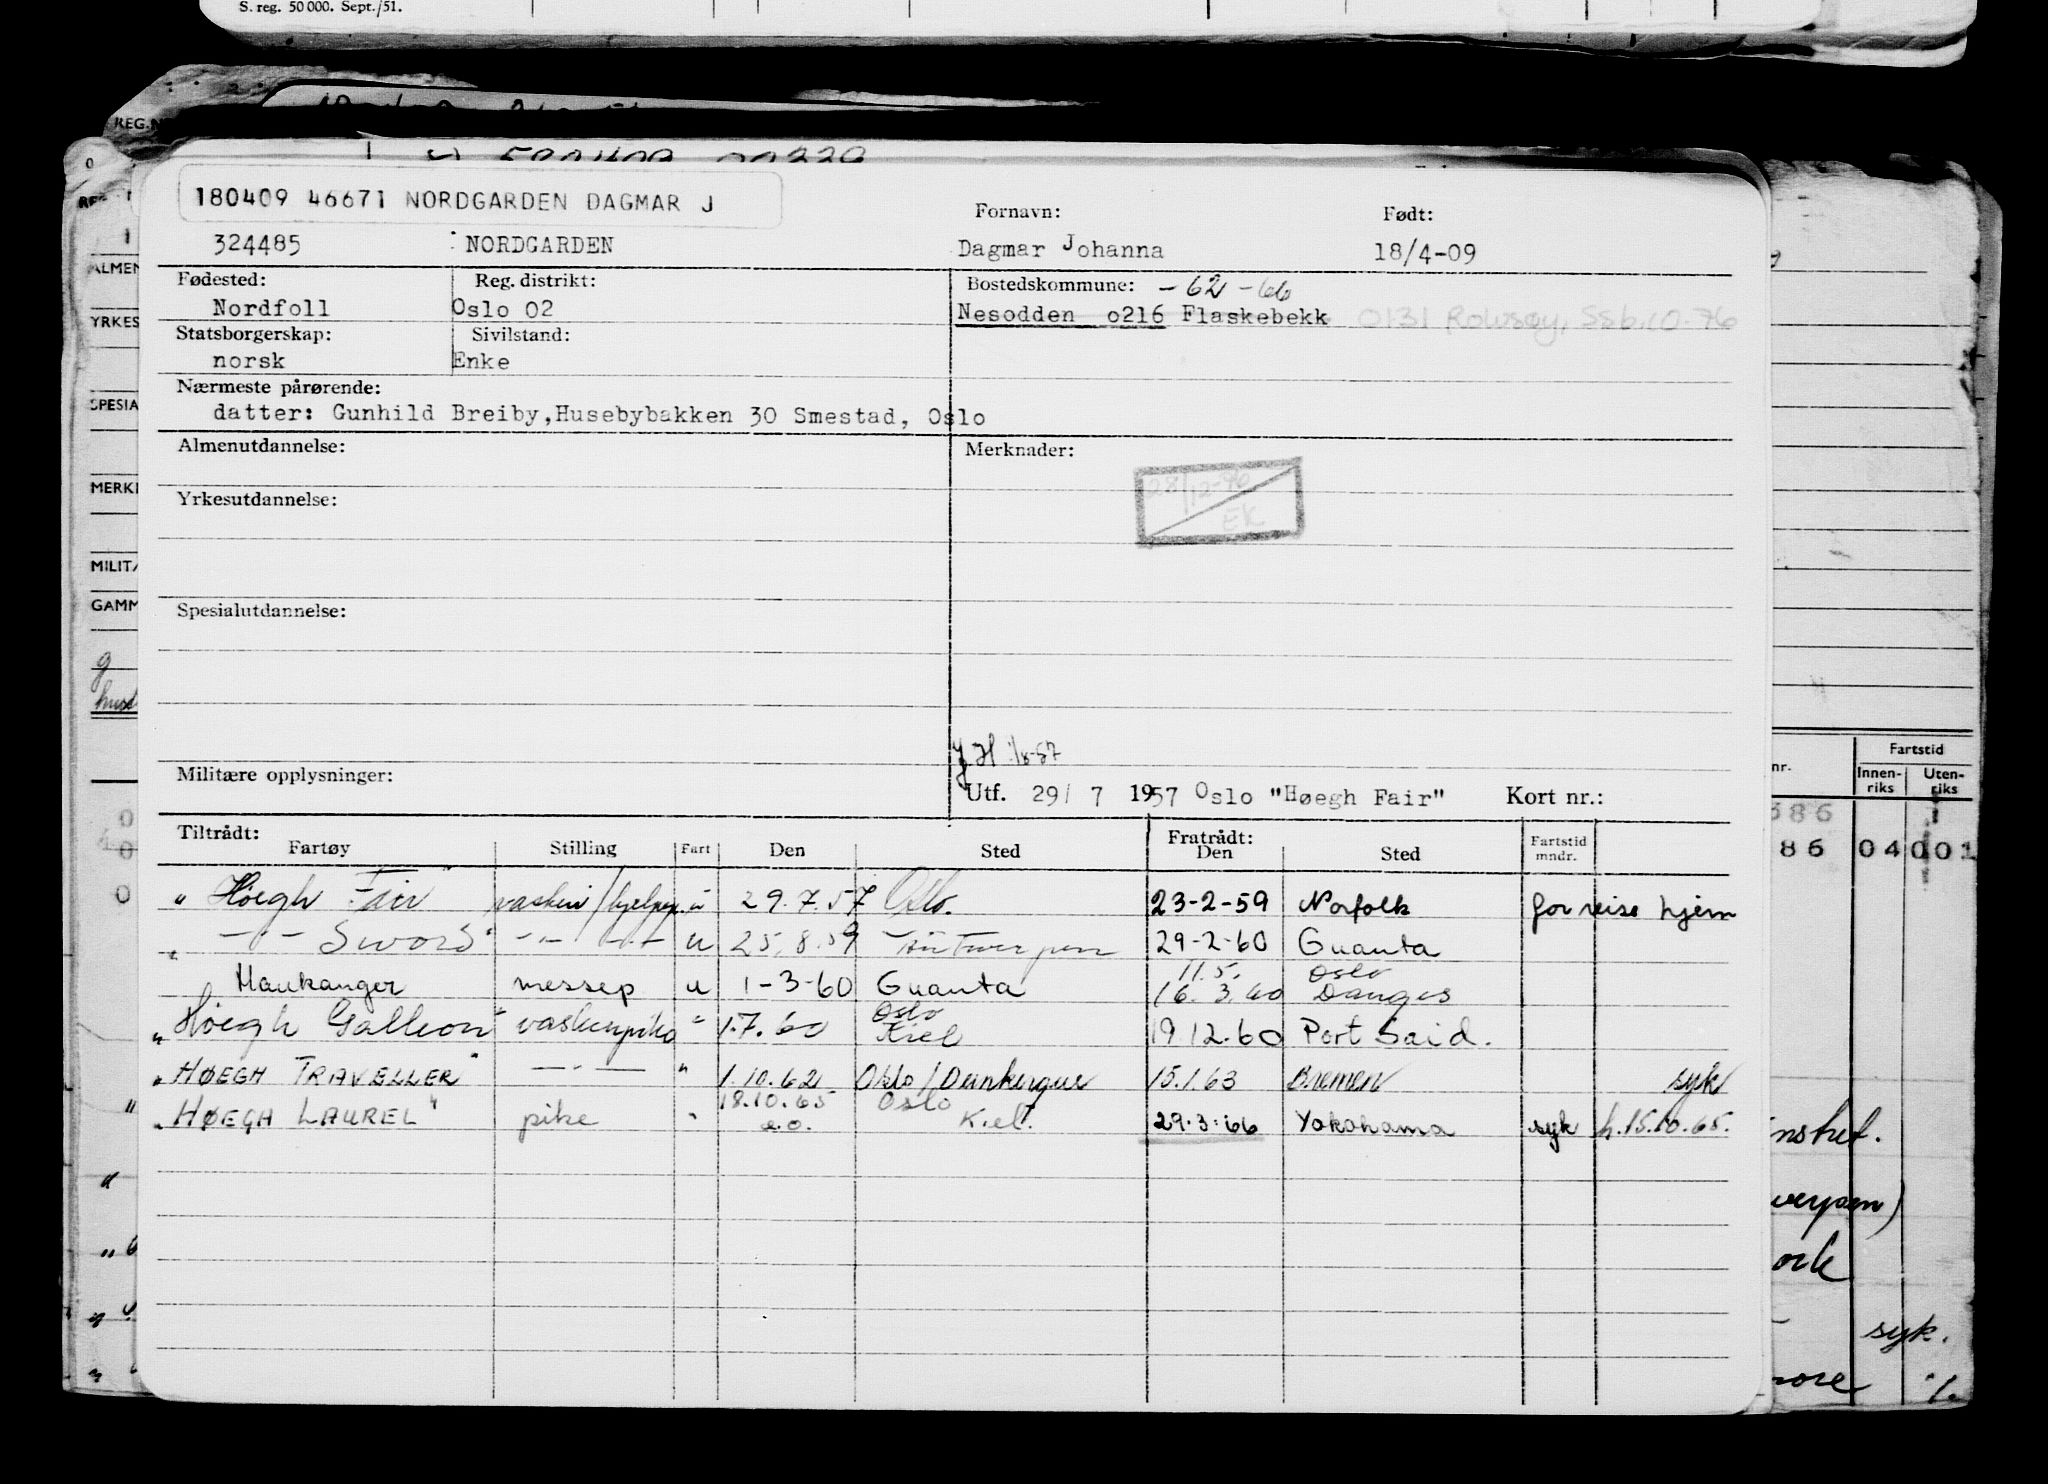 S. reg. 50 000. Sept./51.
REG.N
180409 46671 NORDGARDEN DAGMAR J
Fornavn: Født:
324485 NORDGARDEN Dagmar Johanna 18/4-09
Fødested: Reg. distrikt: Bostedskommune: -62 -66
Nordfoll Oslo 02 Nesodden o216 Flaskebekk 0131 Rolvsøy, Ssb.10.76
Statsborgerskap: Sivilstand:
norsk Enke
Nærmeste pårørende:
datter: Gunhild Breiby,Husebybakken 30 Smestad, Oslo
Almenutdannelse: Merknader:
28/12-76
EK
Yrkesutdannelse:
Spesialutdannelse:
1/8-57
Militære opplysninger:
Utf. 29/ 7 1957 Oslo "Høegh Fair" Kort nr.:
Tiltrådt: Fratrådt:
Fartøy Stilling Fart Den Sted Den Sted Fartstid mndr.
" Høegh Fair" vaskeri/hjelpep. u 29.7.57 Oslo. 23-2-59 Norfolk for reise hjem
" -"- Sword" -"- -"- u 25.8.59 Antwerpen 29-2-60 Guanta
11.5. Oslo
Haukanger messep u 1-3-60 Guanta 16.3.60 Danges
Oslo
"Høegh Galleon" vaskeripike " 1.7.60 Kiel 19.12.60 Port Said.
"HØEGH TRAVELLER" -"- " 1.10.62 Oslo/Dunkerque 15.1.63 Bremen syk
18.10.65 Oslo
"HØEGH LAUREL" pike " e.o. Kiel. 29.3.66 Yokohama syk h.15.10.65.
ALMEN
YRKES
SPESIA
MERK
MILIT
GAMM
nr. Fartstid
Innen-riks Uten-riks
386
86 04 001
syk.